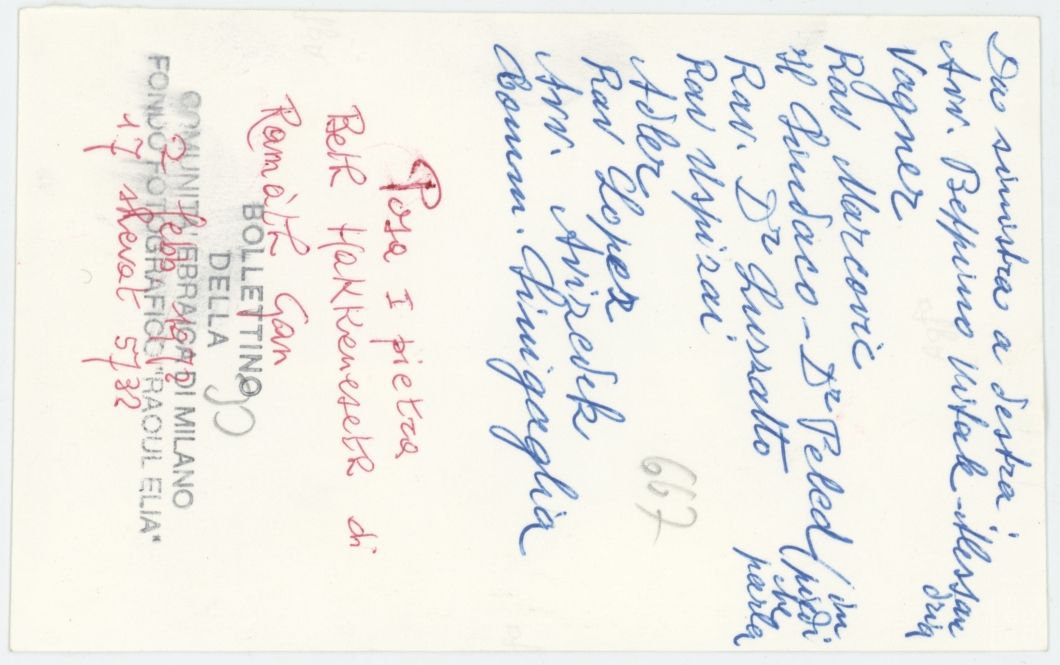 Da sinistra a destra:
Avv. Beppino Vitale - Alessan
dria
Vagner
Rav Marcovic
Il Sindaco - Dr Peled (in
piedi
che
parla
Rav. Dr Lussatto
Rav Uspizai
Adler
Rav Lopez
Avv. Avizedek
Comm. Sinigaglia
667
Posa I pietra
Beth Hakkeneseth di
Ramàth Gan
2 febb 1972
17 shevat 5732
BOLLETTINO
DELLA
COMUNITA' EBRAICA DI MILANO
FONDO FOTOGRAFICO "RAOUL ELIA"